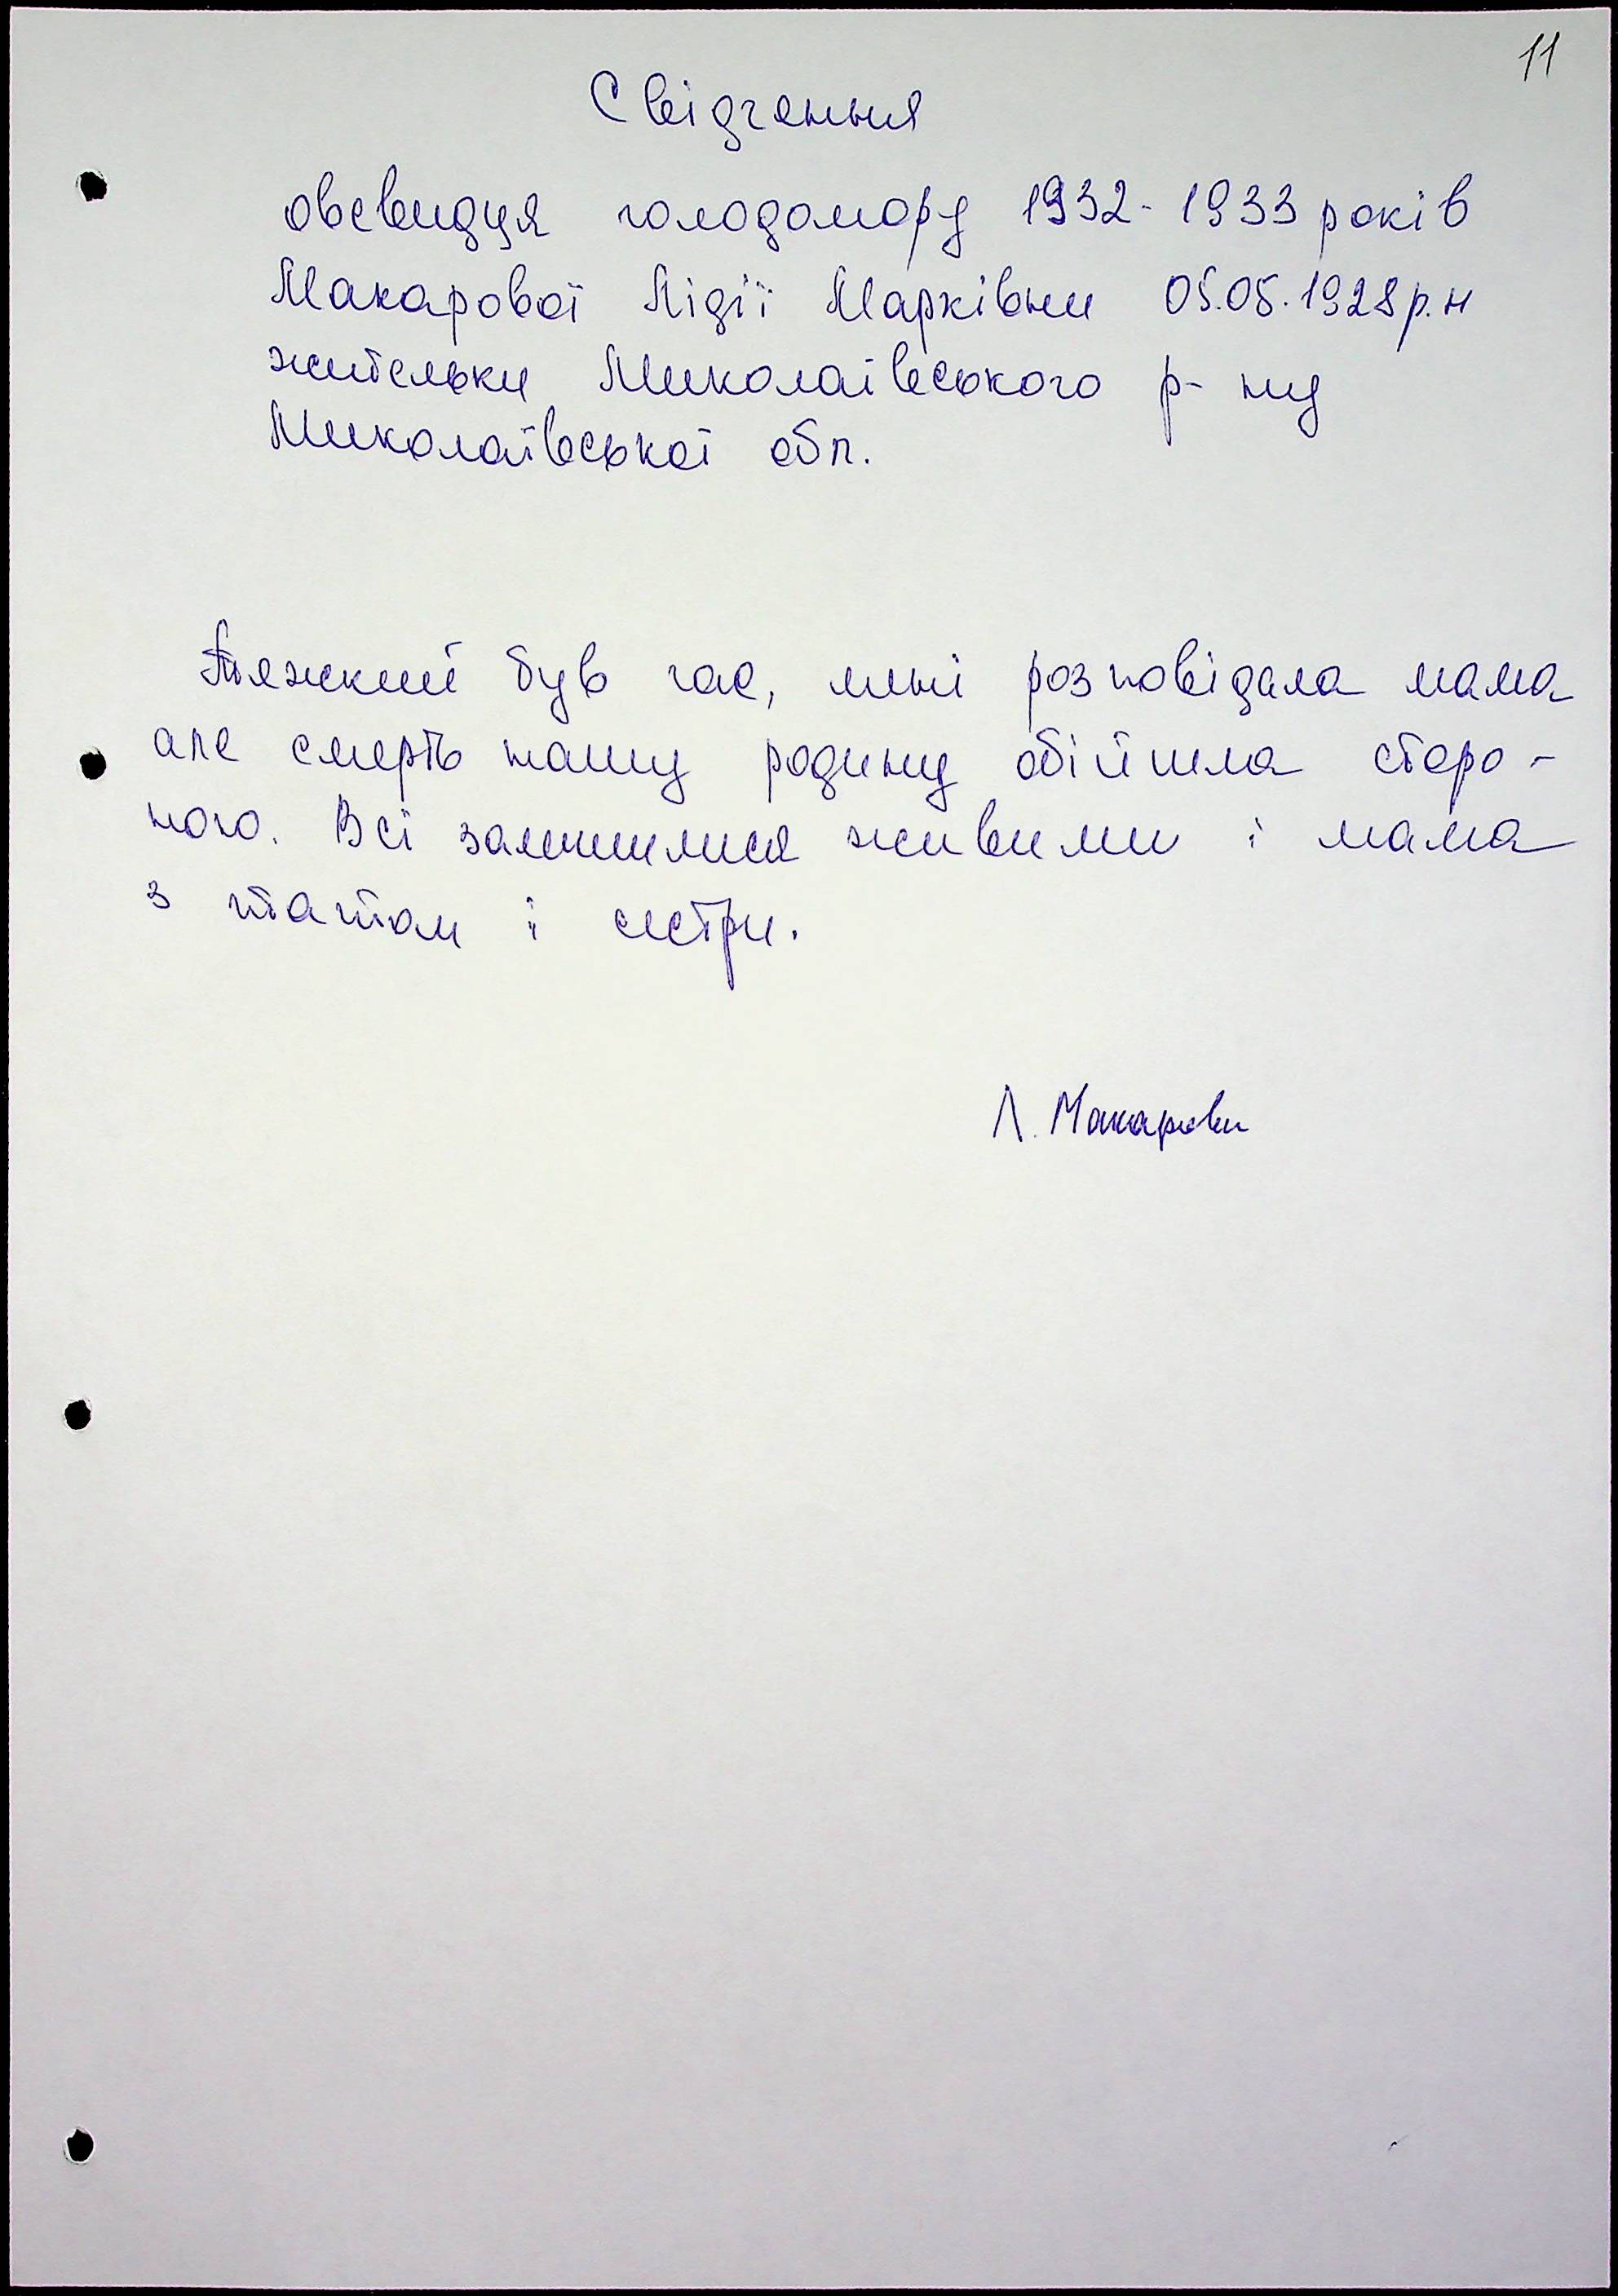 11
Свідчення
овевидця голодомору 1932-1933 років
Макарової Лідії Марківни 05.05.1928 р.н
жительки Миколаівського р-ну
Миколаївської обл.
Тяжкий був час, мині розповідала мама
але смерть нашу родину обійшла сторо-
ною. Всі залишилися живими і мама
з татом і сестри.
Л. Макарова